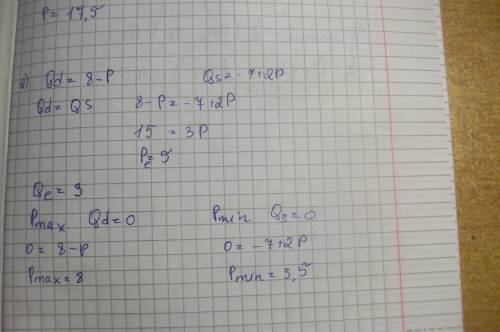 P = 17,5
2) Qd = 8-P Qs = -7+2P
Qd = QS 8-P = -7+2P
15 = 3P
Pe = 5
Qe = 3
Pmax Qd=0 Pmin Qs=0
0 = 8-p 0 = -7+2P
Pmax = 8 Pmin = 3,5